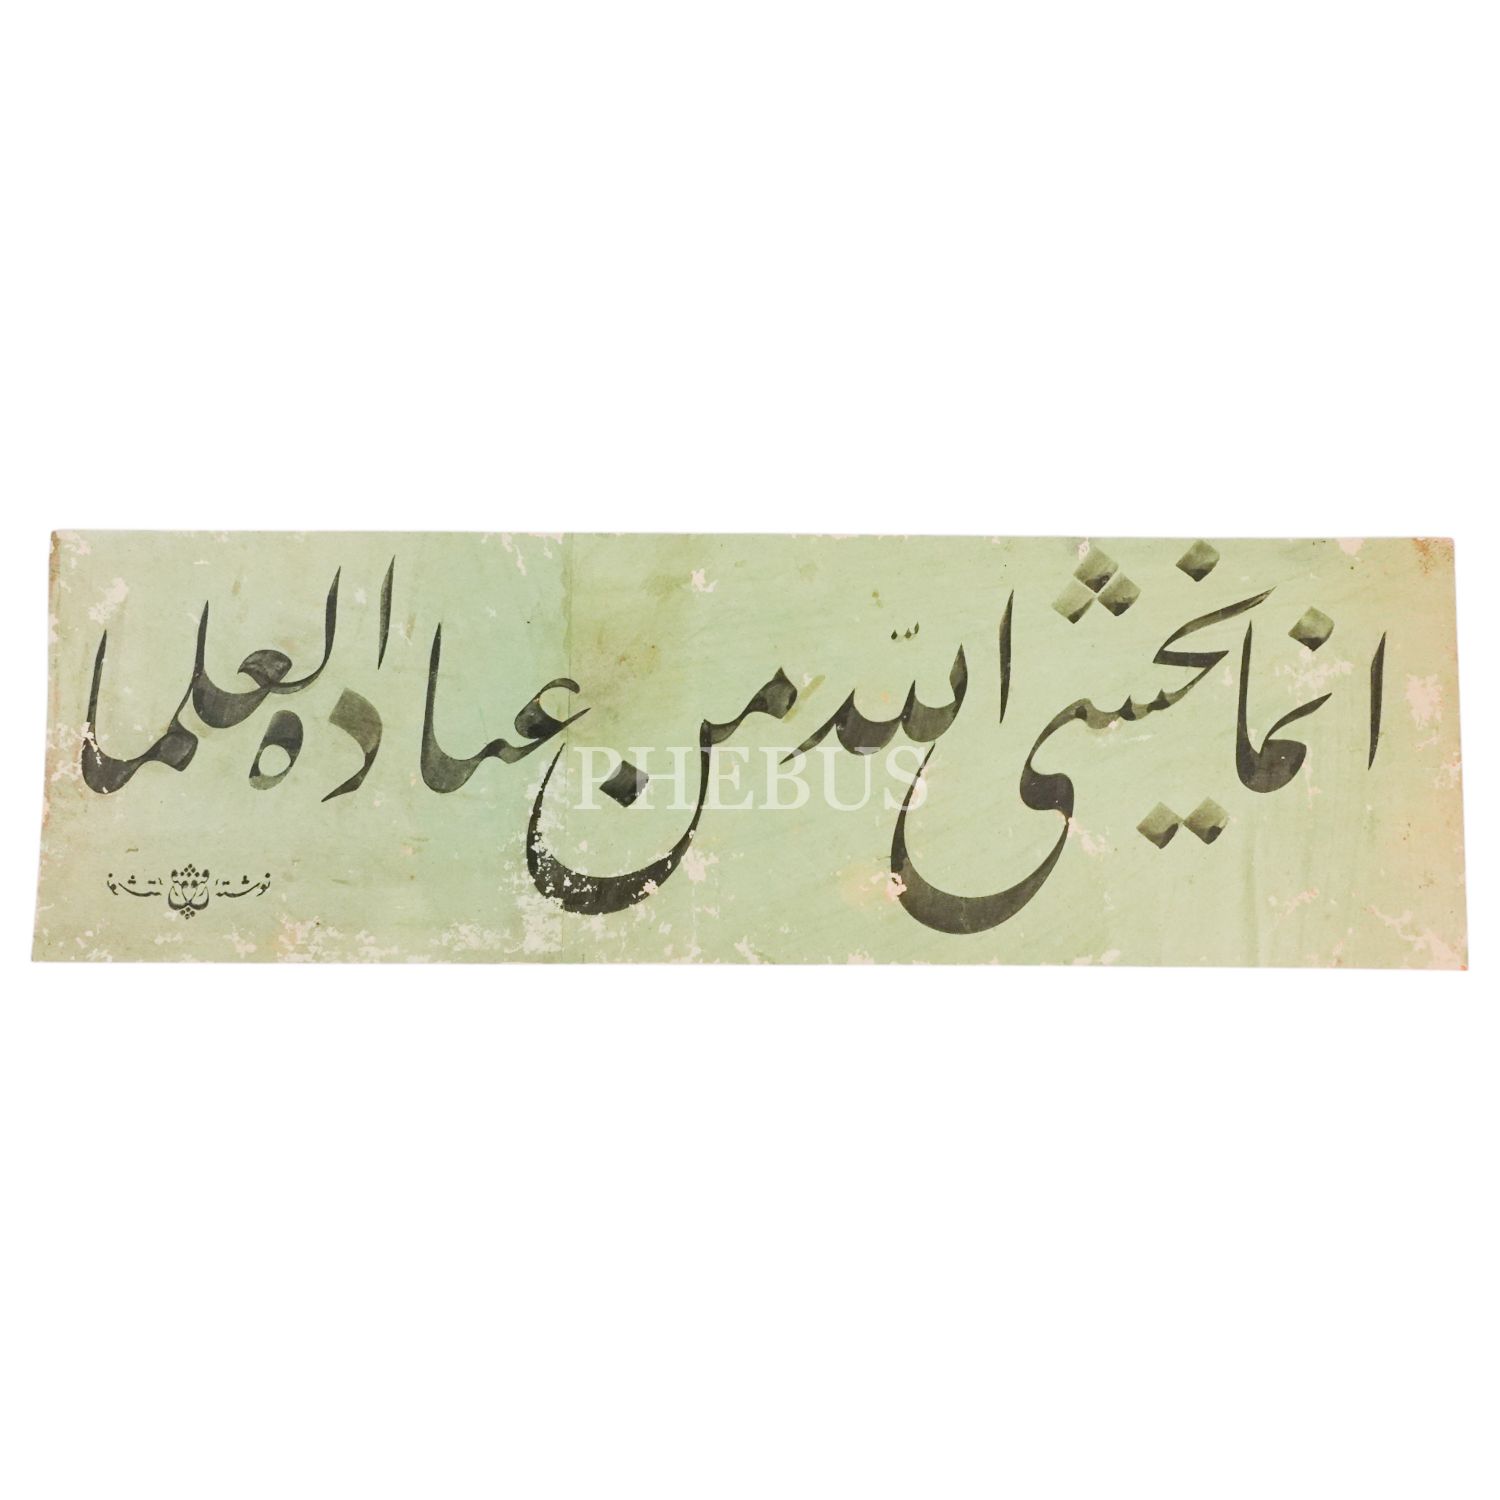 انما يخشى الله من عباده العلما
نوشته
PHEBUS